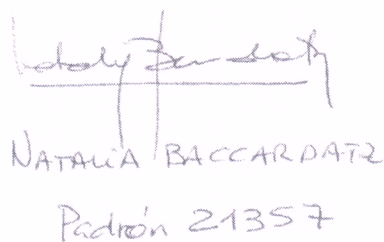 NATALIA BACCARDATZ
Padrón 21357